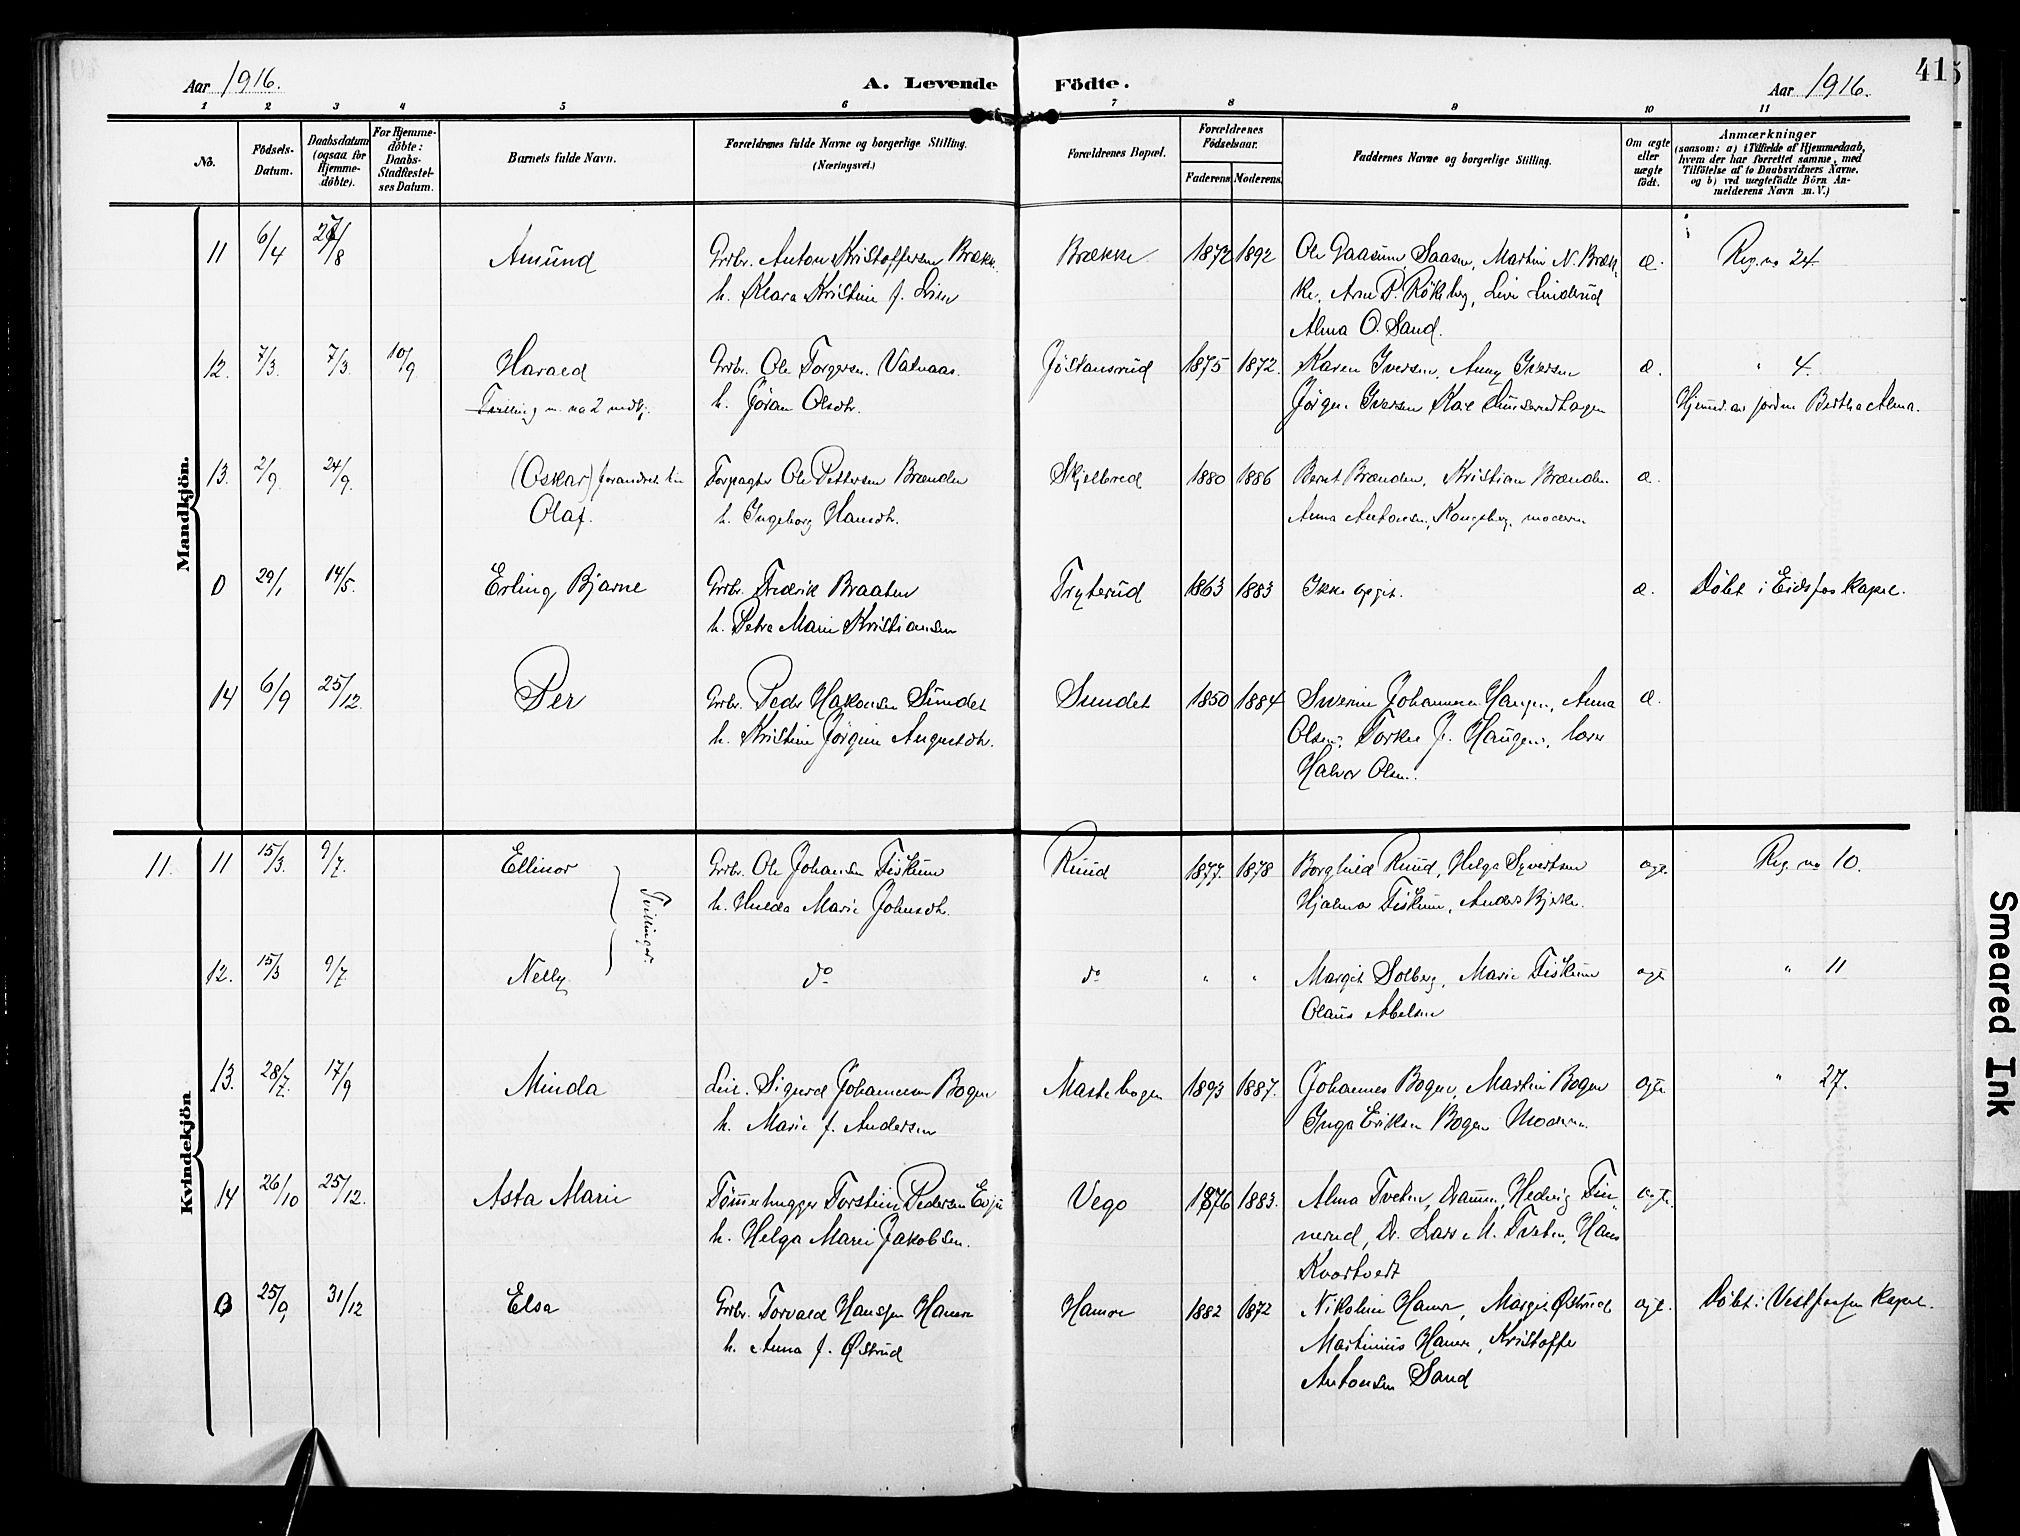 Aar 1916.
A. Levende
Födte.
Aar 1916.
41
1 2 3 4 5 6 7 8 9 10 11
No.
Födsels-Datum.
Daabsdatum (ogsaa for Hjemme-döbte).
For Hjemme-döbte: Daabs-Stadfæstel-ses Datum.
Barnets fulde Navn.
Forældrenes fulde Navne og borgerlige Stilling.
(Næringsvei.)
Forældrenes Bopæl.
Forældrenes Födselsaar.
Faderens
Moderens.
Faddernes Navne og borgerlige Stilling.
Om ægte eller uægte født.
Anmærkninger
(saasom: a) i Tilfælde af Hjemmedaab,
hvem der har forrettet samme, med
Tilföielse af to Daabsvidners Navne,
og b) ved uægtefödte Börn An-
melderens Navn m. V.)
Mandkjön.
11 6/4 27/8 Amund Grdbr. Anton Kristoffersen Brække. Brække 1872 1892 Ole Gaasum Saasen, Martin N. Bræk- æ. Reg. no 24.
h. Klara Kristine f. Lien ke, Arne P. Rökeberg, Livi Linderud
Alma O. Sand.
12. 7/3. 7/3. 10/9 Harald Grdbr. Ole Torgersen Vatnaas. Jöstansrud 1875 1872. Karen Iversen, Anny Iversen æ. " 4.
Tvilling m. no 2 nedkj. h. Jöran Olsdtr. Jörgen Iversen Karl Hjemd. av jordm Berthe Alma.
13. 2/9. 24/9. (Oskar) forandret til Forpagter Ole Pettersen Brænden Skjelbred 1880 1886 Bernt Brænden, Kristian Brænden æ.
Olaf. h. Ingeborg Hansdtr. Anna Antonsen, Kongsberg, moderen
0 29/1 14/5. Erling Bjarne Grdbr. Fredrik Braaten Tryterud 1863 1883 Ikke opgit. æ. Döbt i Eidsfos Kapel.
h. Petra Marie Kristiansen
14 6/9 25/12. Per Grdbr. Peder Hakonsen Sundet Sundet 1850 1884 Severine Johannesen Haugen, Anna æ.
h. Kristine Jörgine Augustdtr. Olsen, Torkel J. Haugen, lærer
Halvor Olsen.
Kvindekjön
11. 11 15/3. 9/7. Ellinor Grdbr. Ole Johansen Fiskum Ruud 1877. 1878 Borghild Ruud, Helga Syvertsen ægt. Reg. no 10.
Tvillinger.
h. Hulda Marie Johnsdtr. Hjalmar Fiskum, Anders Bjerke.
12. 15/3 9/7. Nelly do do " " Margit Solberg, Marie Fiskum ægt " 11
Olaus Abelsen
13. 28/7. 17/9 Minda Leil. Sigurd Johannesen Bogen Mastebogen 1893 1887. Johannes Bogen, Martin Bogen ægt. " 27.
h. Marie f. Andersen Inga Eriksen Bogen Moderen.
14 26/10 25/12. Asta Marie Tömmerhugger Torstein Pedersen Evju Vego 1876 1883. Alma Tveten, Drammen, Hedvig Fin- ægt.
h. Helga Marie Jakobsen. nerud, Dr. Lars M. Tveten, Hans
0 25/9 31/12 Elsa Grdbr. Torvald Hanssen Hamre Hamre 1882 1872 Nikoline Hamre, Margit Östrud ægt. Döbt i Vestfossen Kapel.
h. Anna f. Östrud Martinius Hamre, Kristoffer
Antonsen Sand
Smeared Ink